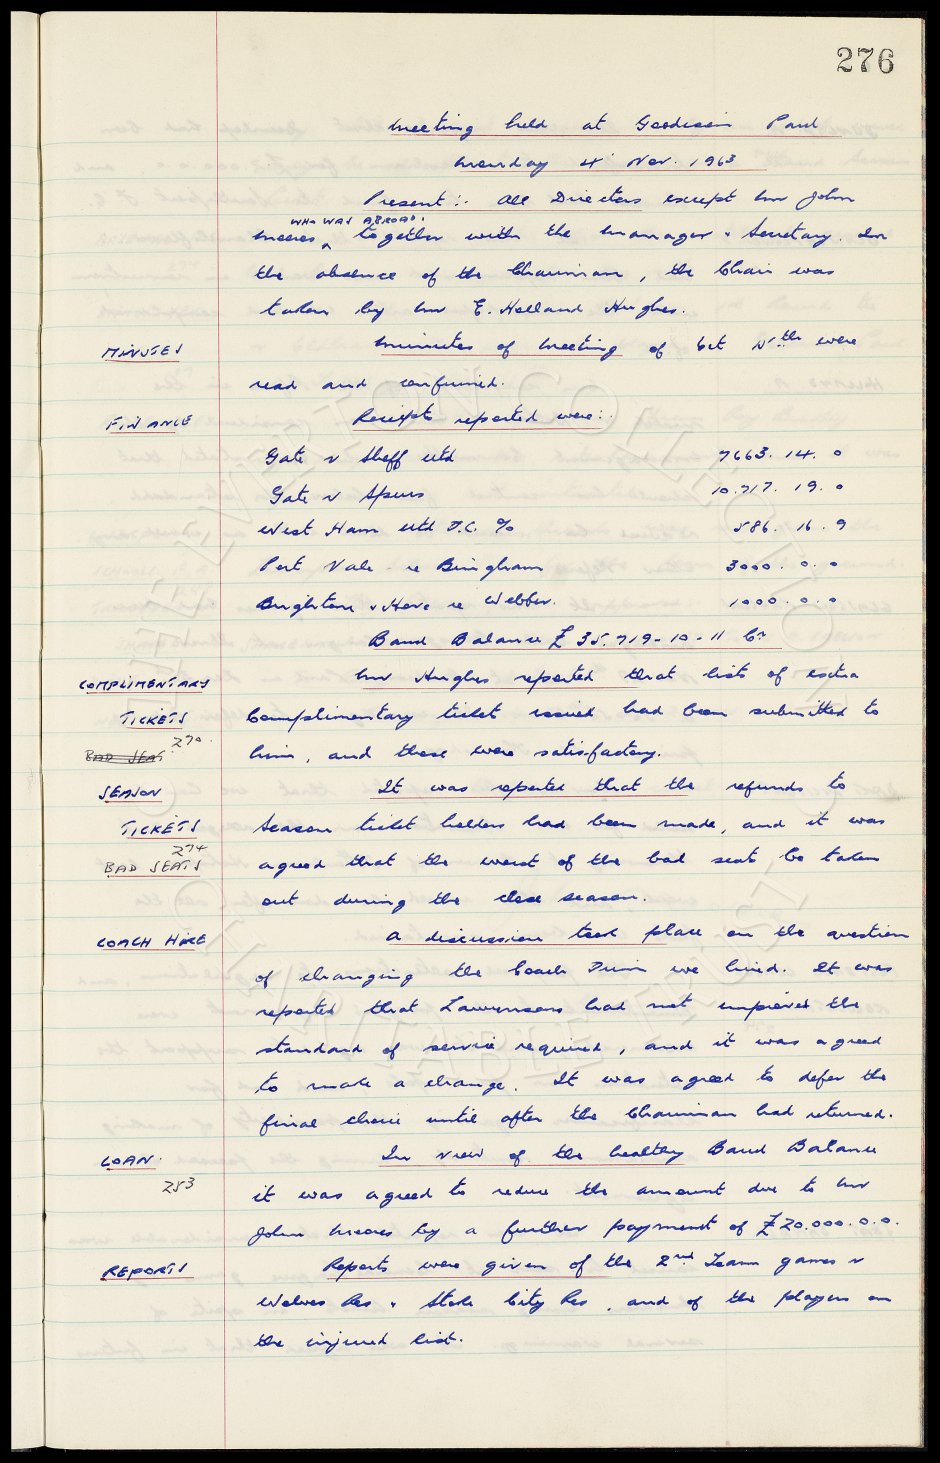 276
Meeting held at Goodison Park
Monday 4th Nov. 1963
Present:- All Directors except Mr John
WHO WAS ABROAD.
Moores, together with the Manager & Secretary. In
the absence of the Chairman, the Chair was
taken by Mr E. Holland Hughes.
MINUTES
Minutes of Meeting of Oct 15th were
read and confirmed.
FINANCE
Receipts reported were:-
Gate v Sheff Utd 7663. 14. 0
Gate v Spurs 10.717. 19. 0
West Ham Utd F.C. % 586. 16. 9
Port Vale - re Bingham 3000. 0. 0
Brighton & Hove re Webber. 1000. 0. 0
Bank Balance £35.719-10-11 Cr
COMPLIMENTARY
Mr Hughes reported that lists of extra
TICKETS
Complimentary ticket issued had been submitted to
270.
BAD SEAT
him, and these were satisfactory.
SEASON
It was reported that the refunds to
TICKETS
Season ticket holders had been made, and it was
274
BAD SEATS
agreed that the worst of the bad seats be taken
out during the close season.
COACH HIRE
A discussion took place on the question
of changing the Coach Firm we hired. It was
reported that Lawrensons had not improved the
standard of service required, and it was agreed
to make a change. It was agreed to defer the
final choice until after the Chairman had returned.
LOAN.
In view of the healthy Bank Balance
253
it was agreed to reduce the amount due to Mr
John Moores by a further payment of £20.000.0.0.
REPORTS
Reports were given of the 2nd Team games v
Wolves Res & Stoke City Res, and of the players on
the injured list.